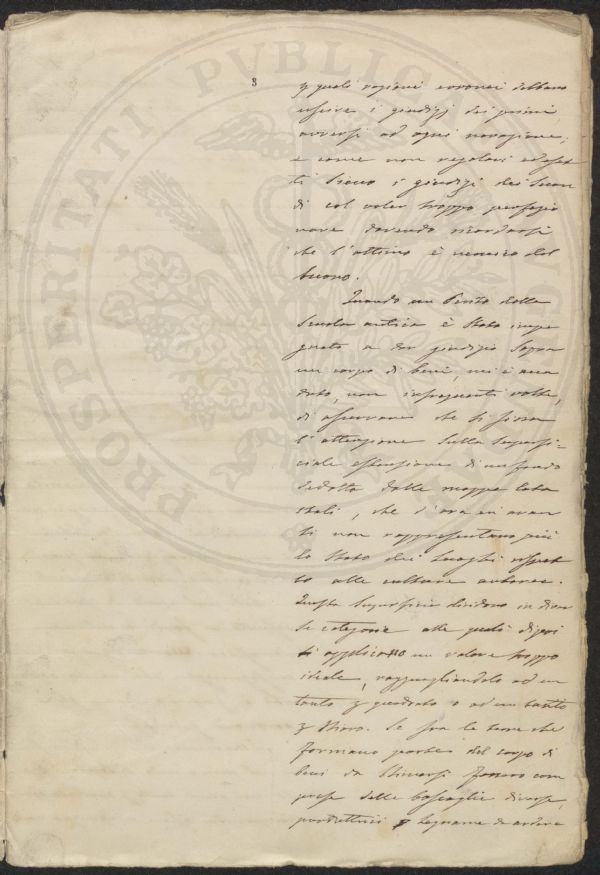 3
PROSPERITATI PUBLICAE AUGENDAE
quali ragioni erronei debbano
uscire i giudizj dei primi
avversi ad ogni novazione,
e come non regolari ed esat
ti sieno i giudizi dei secon
di col voler troppo perfezio
nare dovendo ricordarsi
che l'ottimo è nemico del
buono.
Quando un Perito della
Scuola antica è stato impe
gnato a dar giudizio sopra
un corpo di beni, mi è acca
duto, non infrequenti volte,
di osservare che si fissa
l'attenzione sulla superfi-
ciale estensione di un fondo
dedotta dalle mappe cata
stali, che d'ora in avan
ti non rappresentano più
lo stato dei luoghi rispet
to alle culture arboree.
Questa superficie dividono in diver
se categorie alle quali di poi
si applicano un valore troppo
ideale, ragguagliandolo ad un
tanto quadrato o ad un tanto
Se fra le terre che
formano parte del corpo di
beni da stimarsi fossero com
prese delle boscaglie diverse,
produttrici legname da ardere